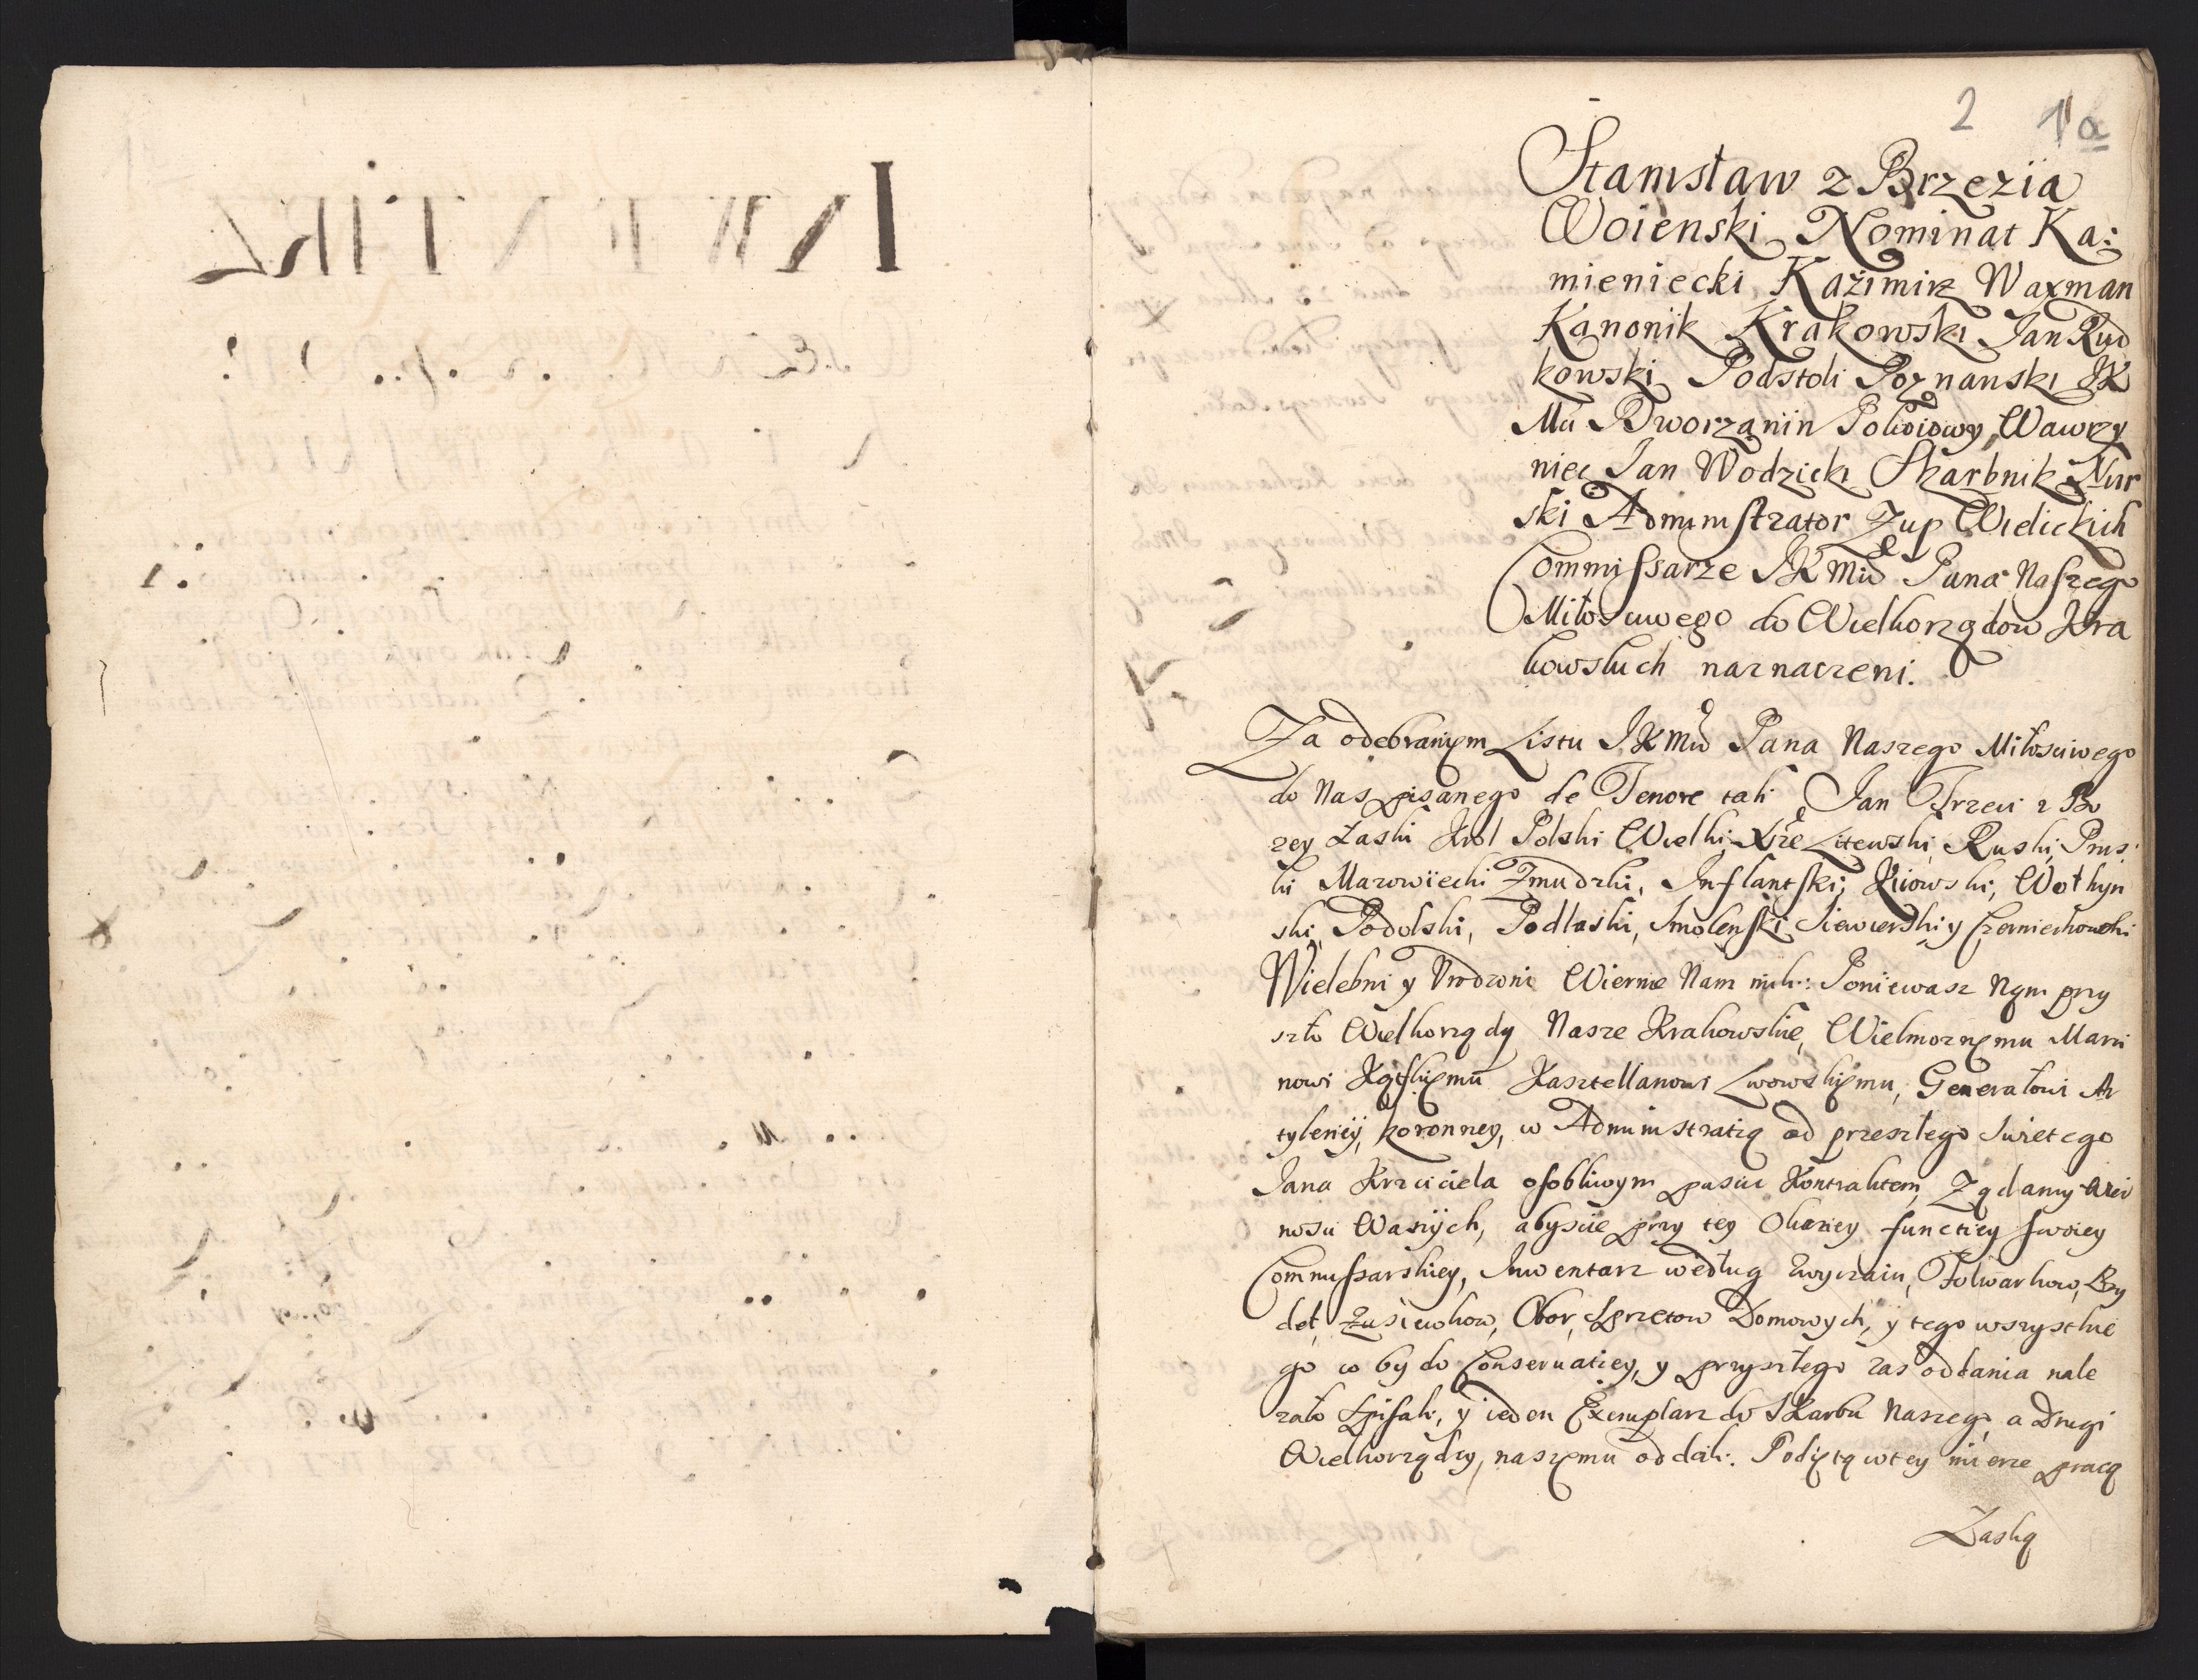 2 1a
Stanisław z Brzezia
Woienski Nominat Ka:
mieniecki Kaźimirz Waxman
Kanonik Krakowski Jan Rud
kowski Podstoli Poznanski JK
Mci Dworzanin Pokoiowy, Wawrzy
niec Jan Wodzicki Skarbnik Nur
ski Administrator Zup Wielickich
Commissarze JKMci Pana Naszego
Miłosciwego do Wielkorządow Kra
kowskich naznaczeni.
Za odebranym Listu JKMci Pana Naszego Miłosciwego
do Nas pisanego de Tenore tali Jan Trzeci z Bo
zey Łaski Krol Polski Wielki Xże Litewski, Ruski, Prus
ki Mazowiecki Zmudzki, Inflantski, Kiiowski, Wołhyn
ski, Podolski, Podlaski, Smolenski Siewierski y Czerniechowski
Wielebni y Vrodzoni Wiernie Nam mili: Poniewasz Nam przy
szło Wielkorządy Nasze Krakowskie, Wielmoznemu Marci
nowi Kątskiemu Kasztellanowi Lwowskiemu, Generałowi Ar
tyleriey, koronney, w Administratią od przeszłego Swietego
Jana Krzciciela osobliwym pascic Kontraktem, Ządamy
nosci Waszych, abyscie przy tey Okaziey functiey swoiey
Commissarskiey, Inwentarz według zwyczaiu, Folwarkow, By
deł, Zusiewkow, Obor, Sprzętow Domowych, y tego wszystkie
go co by do Conseruatiey, y przyszłego zas oddania nale
zało spisali, y ieden Exemplarz do Skarbu Naszego, a Drugi
Wielkorządcy, naszemu oddali. Podiętą w tey mierze pracą
Zaską